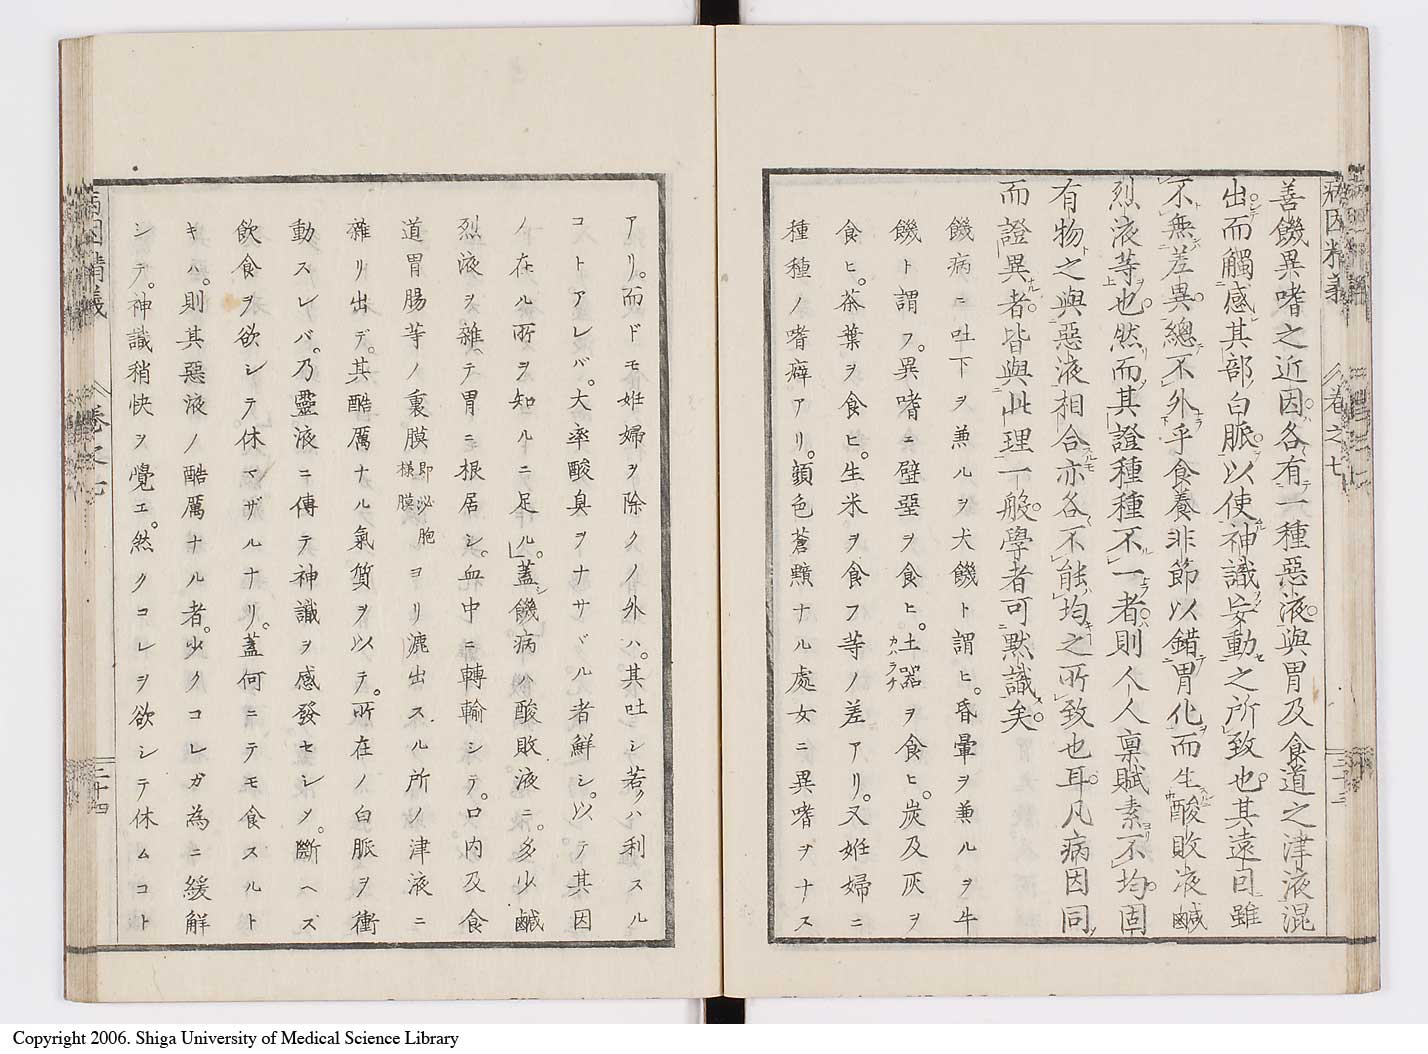 病因精義 卷之七 三十三
善饑異嗜之近因各有一種惡液與胃及食道之津液混
出而觸感其部白脈以使神識妄動之所致也其遠因雖
不無差異總不外乎食養非節以錯胃化而生酸敗液鹹
烈液等也然而其證種種不一者則人人禀賦素不均固
有物之與惡液相合亦各不能均之所致也耳凡病因同
而證異者皆與此理一般學者可默識矣
饑病ニ吐下ヲ兼ルヲ犬饑ト謂ヒ。昏暈ヲ兼ルヲ牛
饑ト謂フ。異嗜ニ壁堊ヲ食ヒ。土器カハラケヲ食ヒ。炭及灰ヲ
食ヒ。茶葉ヲ食ヒ。生米ヲ食フ等ノ差アリ。又姙婦ニ
種種ノ嗜癖アリ。顏色蒼黯ナル處女ニ異嗜ヲナス
アリ。而ドモ姙婦ヲ除クノ外ハ。其吐シ若ハ利スル
コトアレバ。大率酸臭ヲナサヾル者鮮シ。以テ其因
ノ在ル所ヲ知ルニ足ル。蓋シ饑病ハ酸敗液ニ。多少鹹
烈液ヲ雜ヘテ胃ニ根居シ。血中ニ轉輸シテ。口内及食
道胃腸等ノ裏膜即泌胞樣膜ヨリ漉出スル所ノ津液ニ
雜リ出デ。其酷厲ナル氣質ヲ以テ。所在ノ白脈ヲ衝
動スレバ。乃靈液ニ傳テ神識ヲ感發セシメ。斷ヘズ
飲食ヲ欲シテ休マザルナリ。蓋何ニテモ食スルト
キハ。則其惡液ノ酷厲ナル者。少クコレガ為ニ緩解
シテ。神識稍快ヲ覺エ。然クコレヲ欲シテ休ムコト
病因精義 卷之七 三十四
Copyright 2006. Shiga University of Medical Science Library